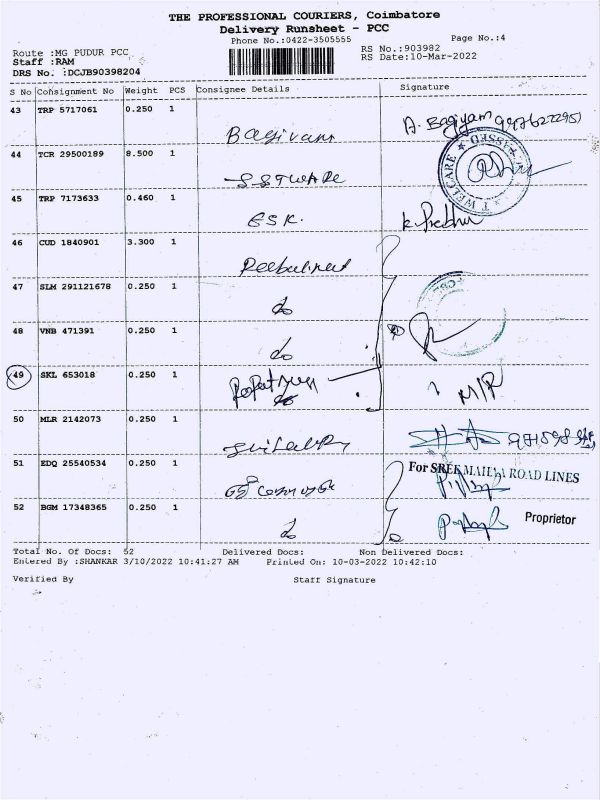 THE PROFESSIONAL COURIERS, Coimbatore
Delivery Runsheet - PCC
Phone No.:0422-3505555
Page No.:4
Route :MG PUDUR PCC
Staff :RAM
DRS No. :DCJB90398204
RS No.:903982
RS Date:10-Mar-2022
S No Consignment No Weight PCS Consignee Details Signature
43 TRP 5717061 0.250 1 Bagivam A. Bagiyam
44 TCR 29500189 8.500 1
45 TRP 7173633 0.460 1 GSK. K. Prebhu
46 CUD 1840901 3.300 1
47 SLM 291121678 0.250 1 do
48 VNB 471391 0.250 1 do
49 SKL 653018 0.250 1 M/R
50 MLR 2142073 0.250 1
51 EDQ 25540534 0.250 1 For SREE MAHAA ROAD LINES
52 BGM 17348365 0.250 1 do Proprietor
Total No. Of Docs: 52 Delivered Docs: Non Delivered Docs:
Entered By :SHANKAR 3/10/2022 10:41:27 AM Printed On: 10-03-2022 10:42:10
Verified By Staff Signature